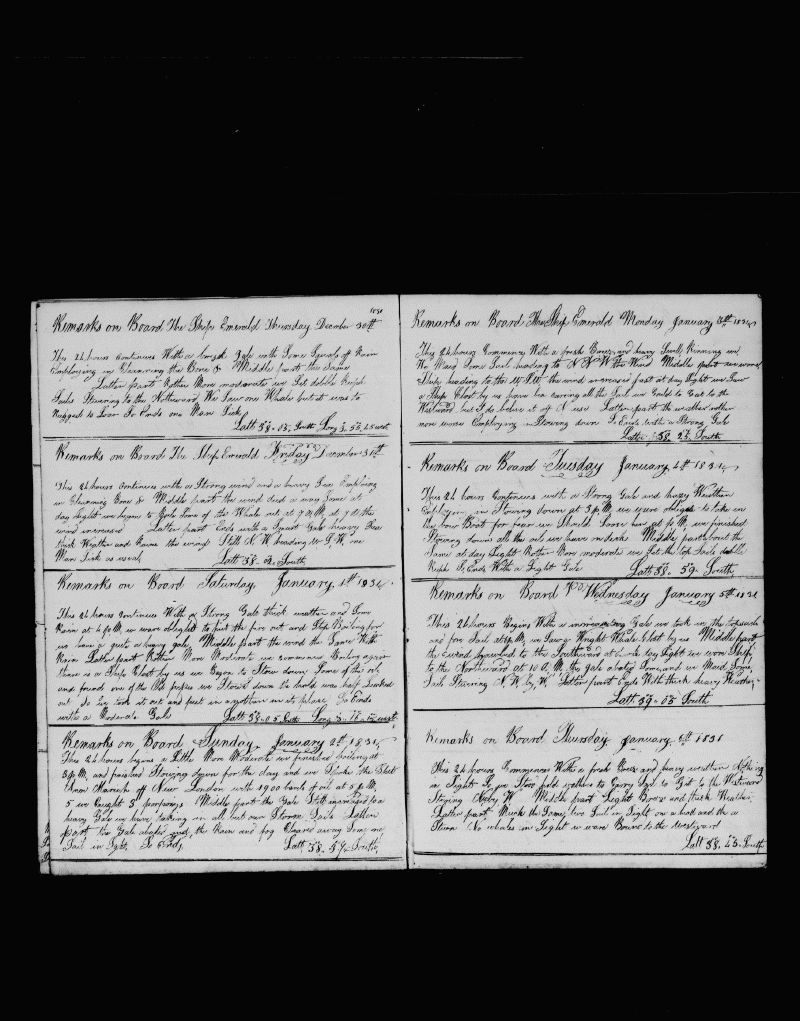 Remarks on Board The Ship Emerald Thursday December 30th
This 24 hours Continues With a brisk Gale with Some Squals of Rain
Employing in Cleaning the Bone & Middle part the Same
Latter part Rather More moderate we Set doble Reeft
Sails Stearing to the Northward We Saw one Whale but it was to
Rugged to Low So Ends one Man Sick
Latt 38.03. South Long 3.53.45 west
Remarks on Board The Ship Emerald Friday December 31th
This 24 hours Continues with a Strong wind and a heavy Sea Employing
in Cleaning Bone & Middle part the wind died a way Some at
day light we began to the Whale out at 7 A,M, at 9 the
wind increased Latter part Ends with a Smart Gale heavy Sea
thick Weather and Raine the wind Still N W heading S, W, one
Man Sick as usual, Latt 38. 02. South,
Remarks on Board Saturday, January 1th 1831
This 24 hours Continues With a Strong Gale thick weather and Some
Rain at 4 p,M, we ware obliged to put the fire out and Stop Boiling for
we have a quite a heavy gale, Middle part the wind the Same With
Rain Latter part Rather More Moderate we commence Boiling again
there is a Ship Clost by us we Began to Stow down Some of the oil
and found one of the Old pipes we Stow'd down the hold was half Leaked
out So we took it out and put in another in its place So Ends
with a Moderate Gale Latt 38.05 South Long 3. 18. 15 west
Remarks on Board, Sunday, January 2th 1831,
This 24 hours begins a Little More Moderate we finished Boiling at
3 p,M, and finished Stowing down for the day and we Spoke the Ship
Ann Maria of New London with 1900 barels of oil at 5 p,M,
5 we Caught 3 porpoises Middle part the Gale Still increased to a
heavy Gale we have taking in all but our Storm Sails Latter
part the Gale abates and, the Rain and fog Cleares away Some one
Sail in Sght, So Ends, Latt 38. 57 South,
Remarks on Board The Ship Emerald Monday January 3th 1831
This 24 hours Commences With a fresh Breeze and heavy Swell, Running
We Maid Some Sail heading to N N W the Wind Middle part
Ship heading to the W S W the wind increased fast at day light we Saw
a Ship Clost by us have ben caring all the Sail we Could to Gat to the
Westward but I do beleve it of N use Latter part the weather rather
more worse Employing in Stowing down So Ends With a Strong Gale
Latte 38. 24 South
Remarks on Board Tuesday January 4th 1831
This 24 hours Continues with a Strong Gale and hazy Weather
Employing in Stowing down at 3 p,M, we ware obliged to take in
the bow Boat for fear we Should Loose her at 6 M, we finished
Stowing down all the oile we have on deck Middle part, the
Same at day Light Rather More moderate we Set the top Sails doble
Reeft So Ends With a Light Gale Latt 38. 59. South,
Remarks on Board Wednesday January 5th 1831
This 24 hours Begins With a increasing Gale we took in the topsails
and for Sail at p,M, we Saw a Wright Whale Clost by us Middle part
the heading to the Southward at day Light we wore Ship
to the Northward at 10 A,M, the gale abates Some, and we Maid Some
Sail Stearing N W by, W Latter part Ends With thick heavy Weather,
Latt 39. 03 South
Remarks on Board Thursday January 6th 1831
this 24 hours Commences With a fresh Breze and heavy weather Nothing
in Sight So you See hold us to Carry Sail to Gat to the Westward
Stearing by W Middle part Light Breze and thick Weather
Latter part Much the Same, two Sail in Sight on a head and the a
Stern No whales in Sight we ware Bound to the Westward
Latt 38. 43. South